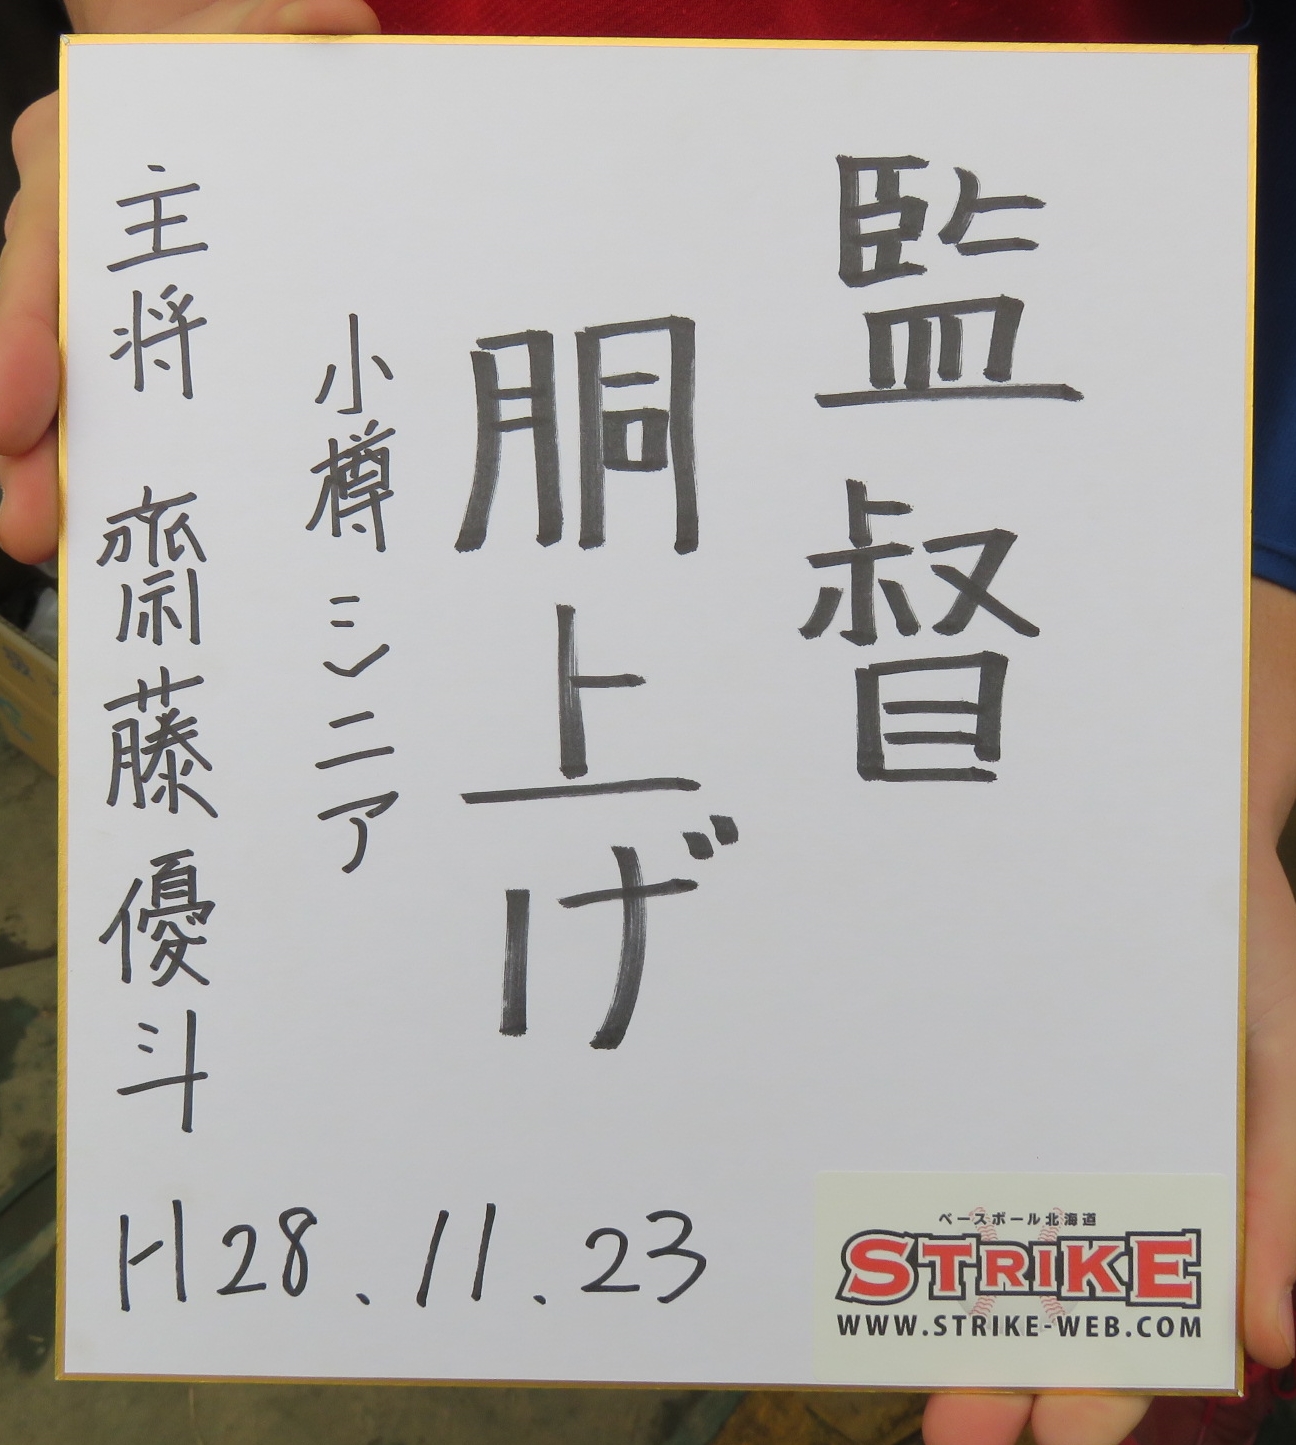 監督
胴上げ
小樽シニア
主将 齋藤優斗
H28.11.23
ベースボール北海道
STRIKE
WWW.STRIKE-WEB.COM